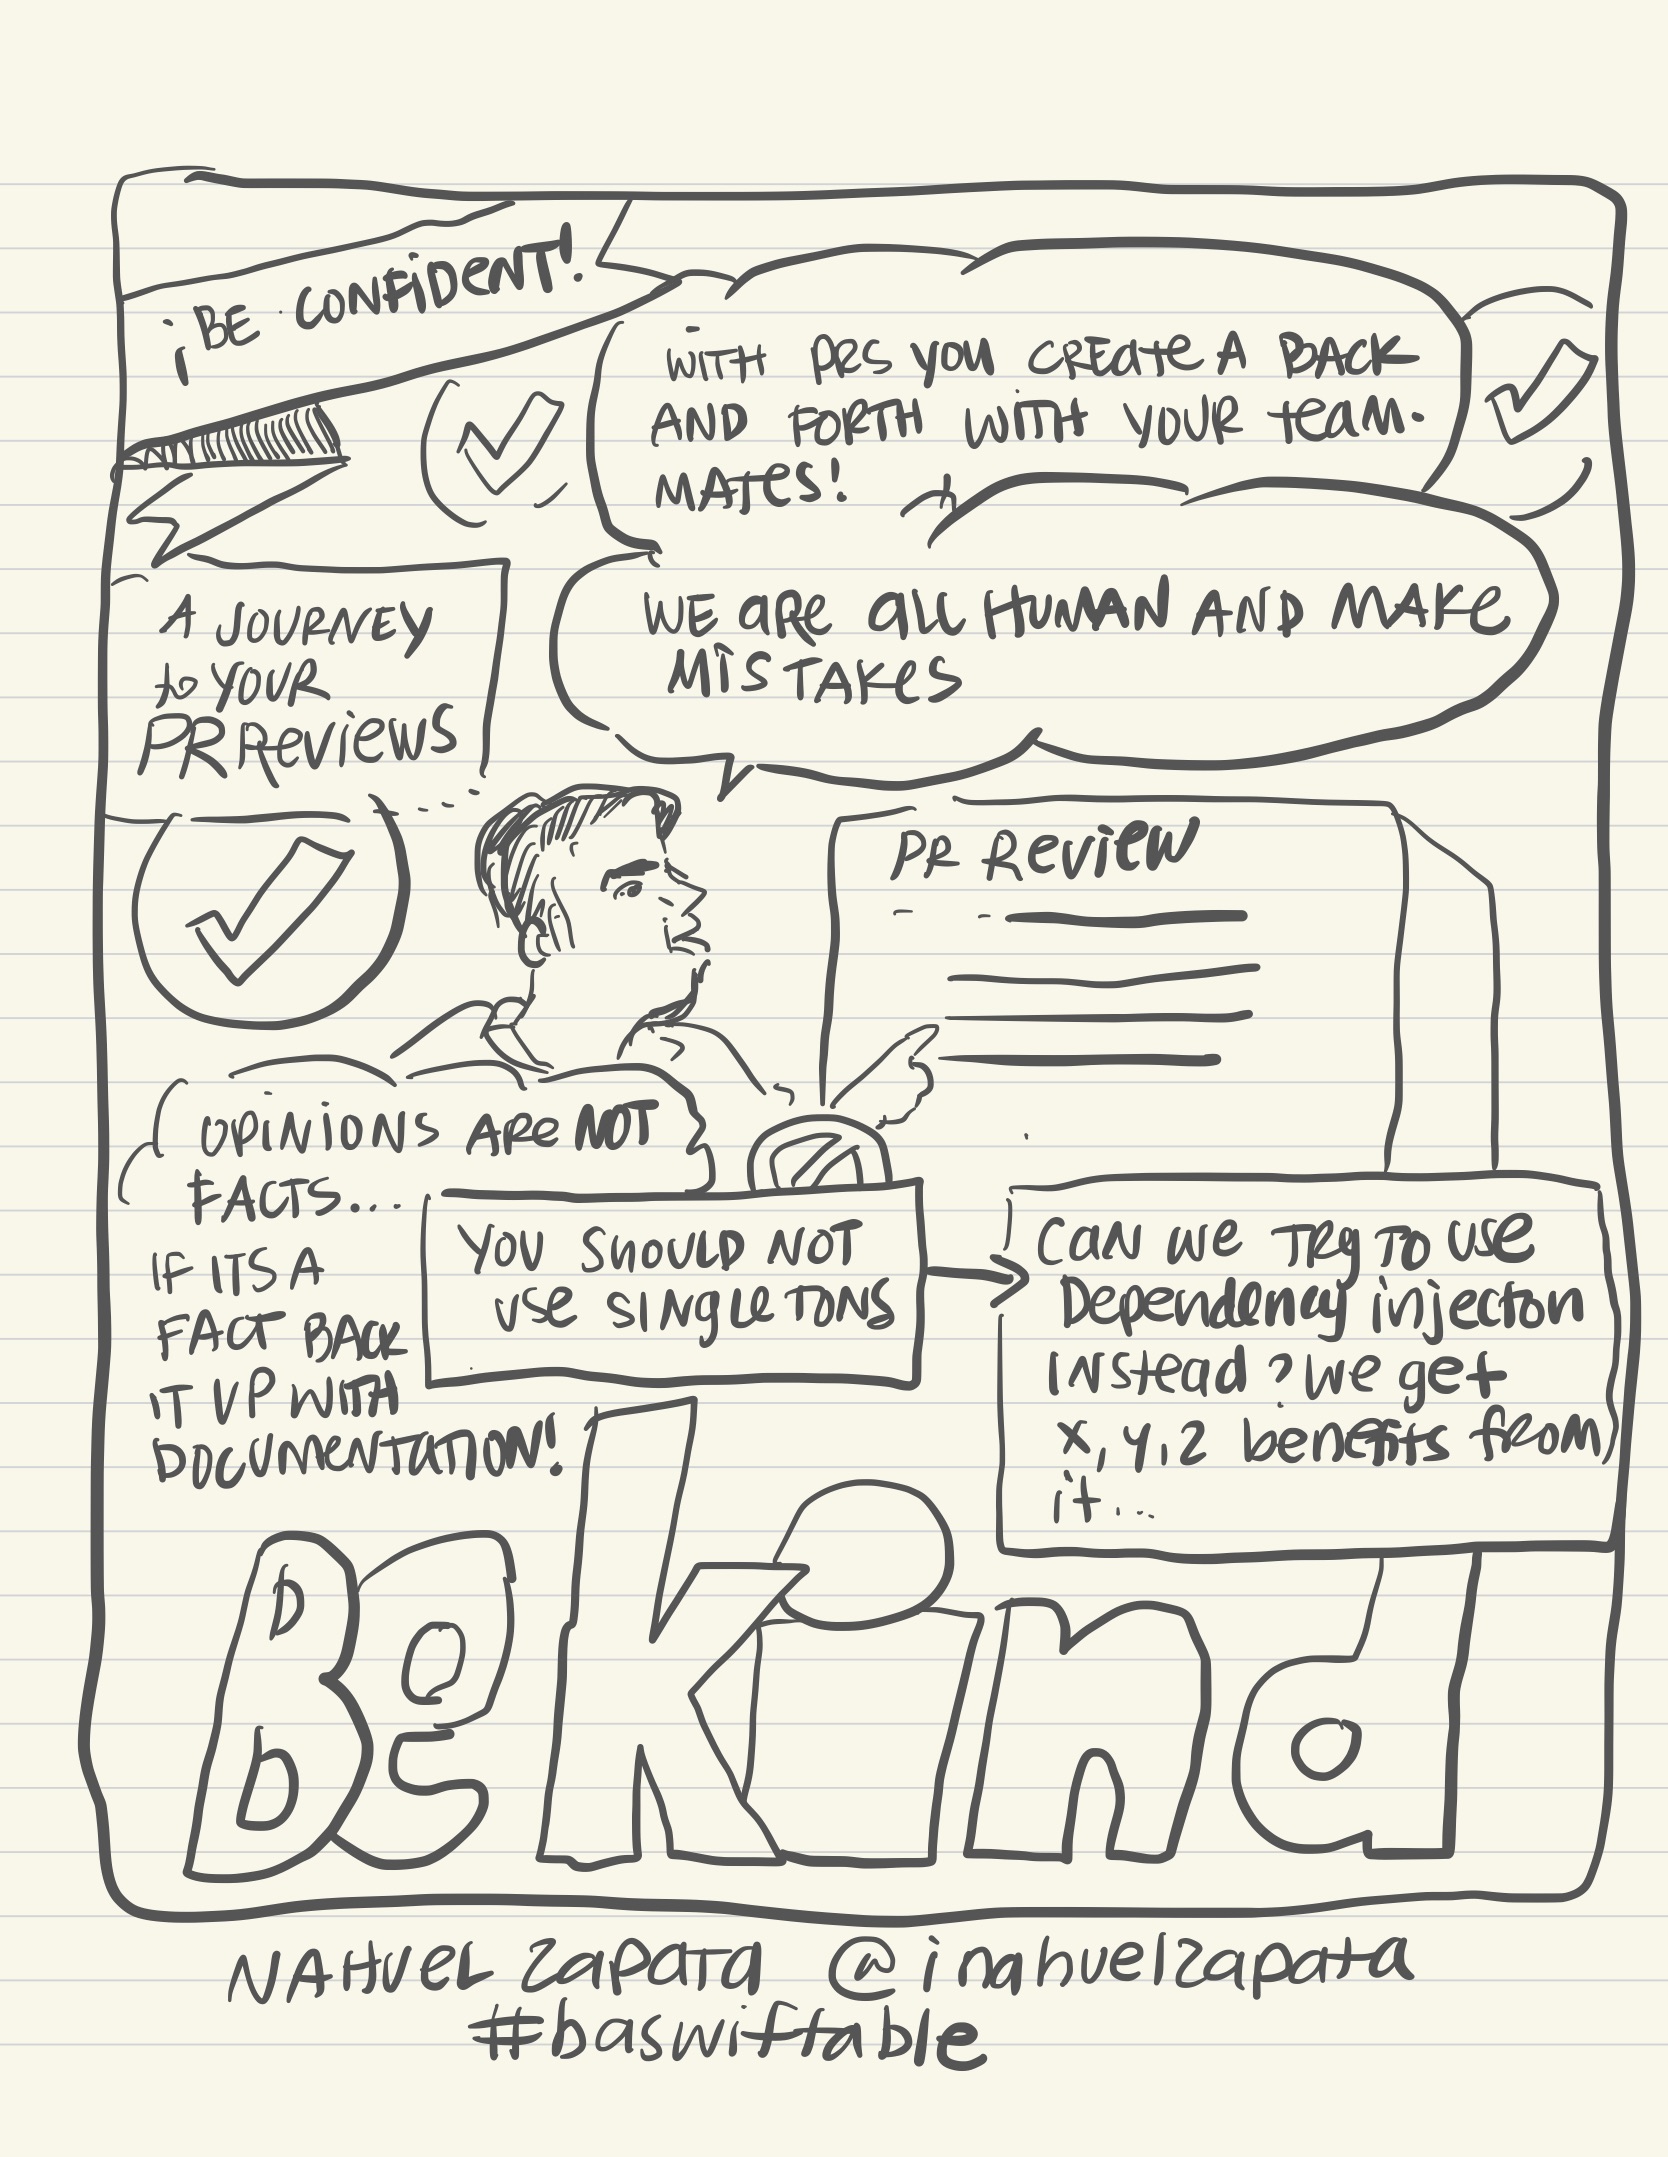 ¡BE CONFIDENT!
WITH PRS YOU CREATE A BACK
AND FORTH WITH YOUR TEAM.
MATES!
WE ARE ALL HUMAN AND MAKE
MISTAKES
A JOURNEY
to YOUR
PR REVIEWS
PR REVIEW
OPINIONS ARE NOT
FACTS...
IF ITS A
FACT BACK
IT UP WITH
DOCUMENTATION!
YOU SHOULD NOT
USE SINGLETONS
CAN WE TRY TO USE
Dependency injecton
INstead? We get
x, y, z benefits from
it...
Be Kind
NAHUEL ZAPATA @inahuelzapata
#baswiftable